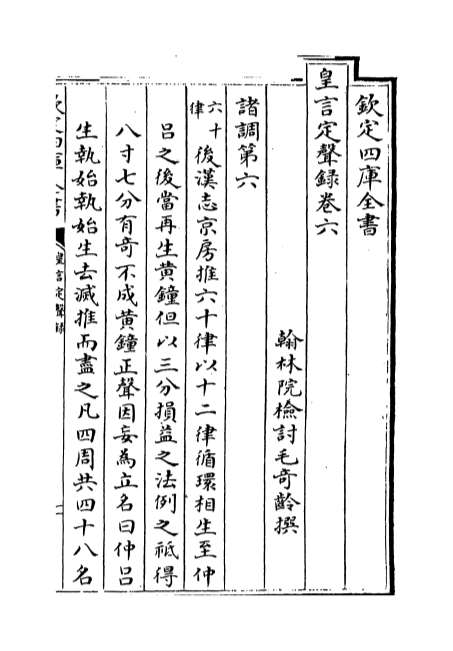 欽定四庫全書
皇言定聲錄卷六
翰林院檢討毛奇齡撰
諸調第六
六十律
後漢志京房推六十律以十二律循環相生至仲
呂之後當再生黄鐘但以三分損益之法例之祗得
八寸七分有奇不成黄鐘正聲因妄為立名曰仲呂
生執始執始生去滅推而盡之凡四周共四十八名
皇言定聲錄